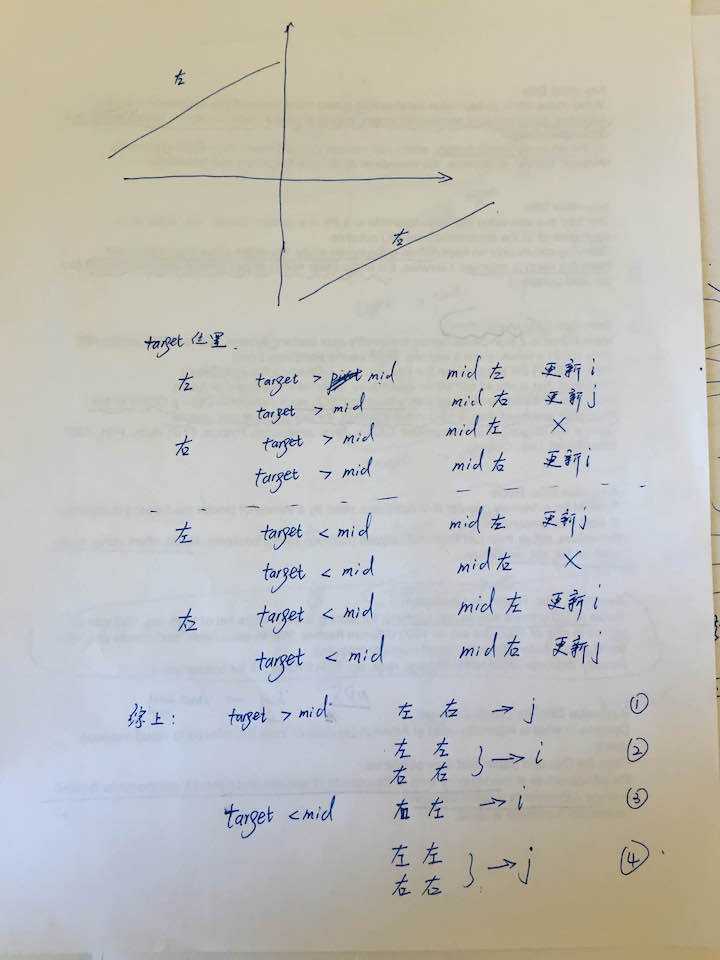 左
右
target 位置.
左 target > mid mid 左 更新 i
target > mid mid 右 更新 j
右 target > mid mid 左 ×
target > mid mid 右 更新 i
左 target < mid mid 左 更新 j
target < mid mid 右 ×
右 target < mid mid 左 更新 i
target < mid mid 右 更新 j
综上: target > mid 左 右 → j ①
左 左
右 右 } → i ②
target < mid 右 左 → i ③
左 左
右 右 } → j ④